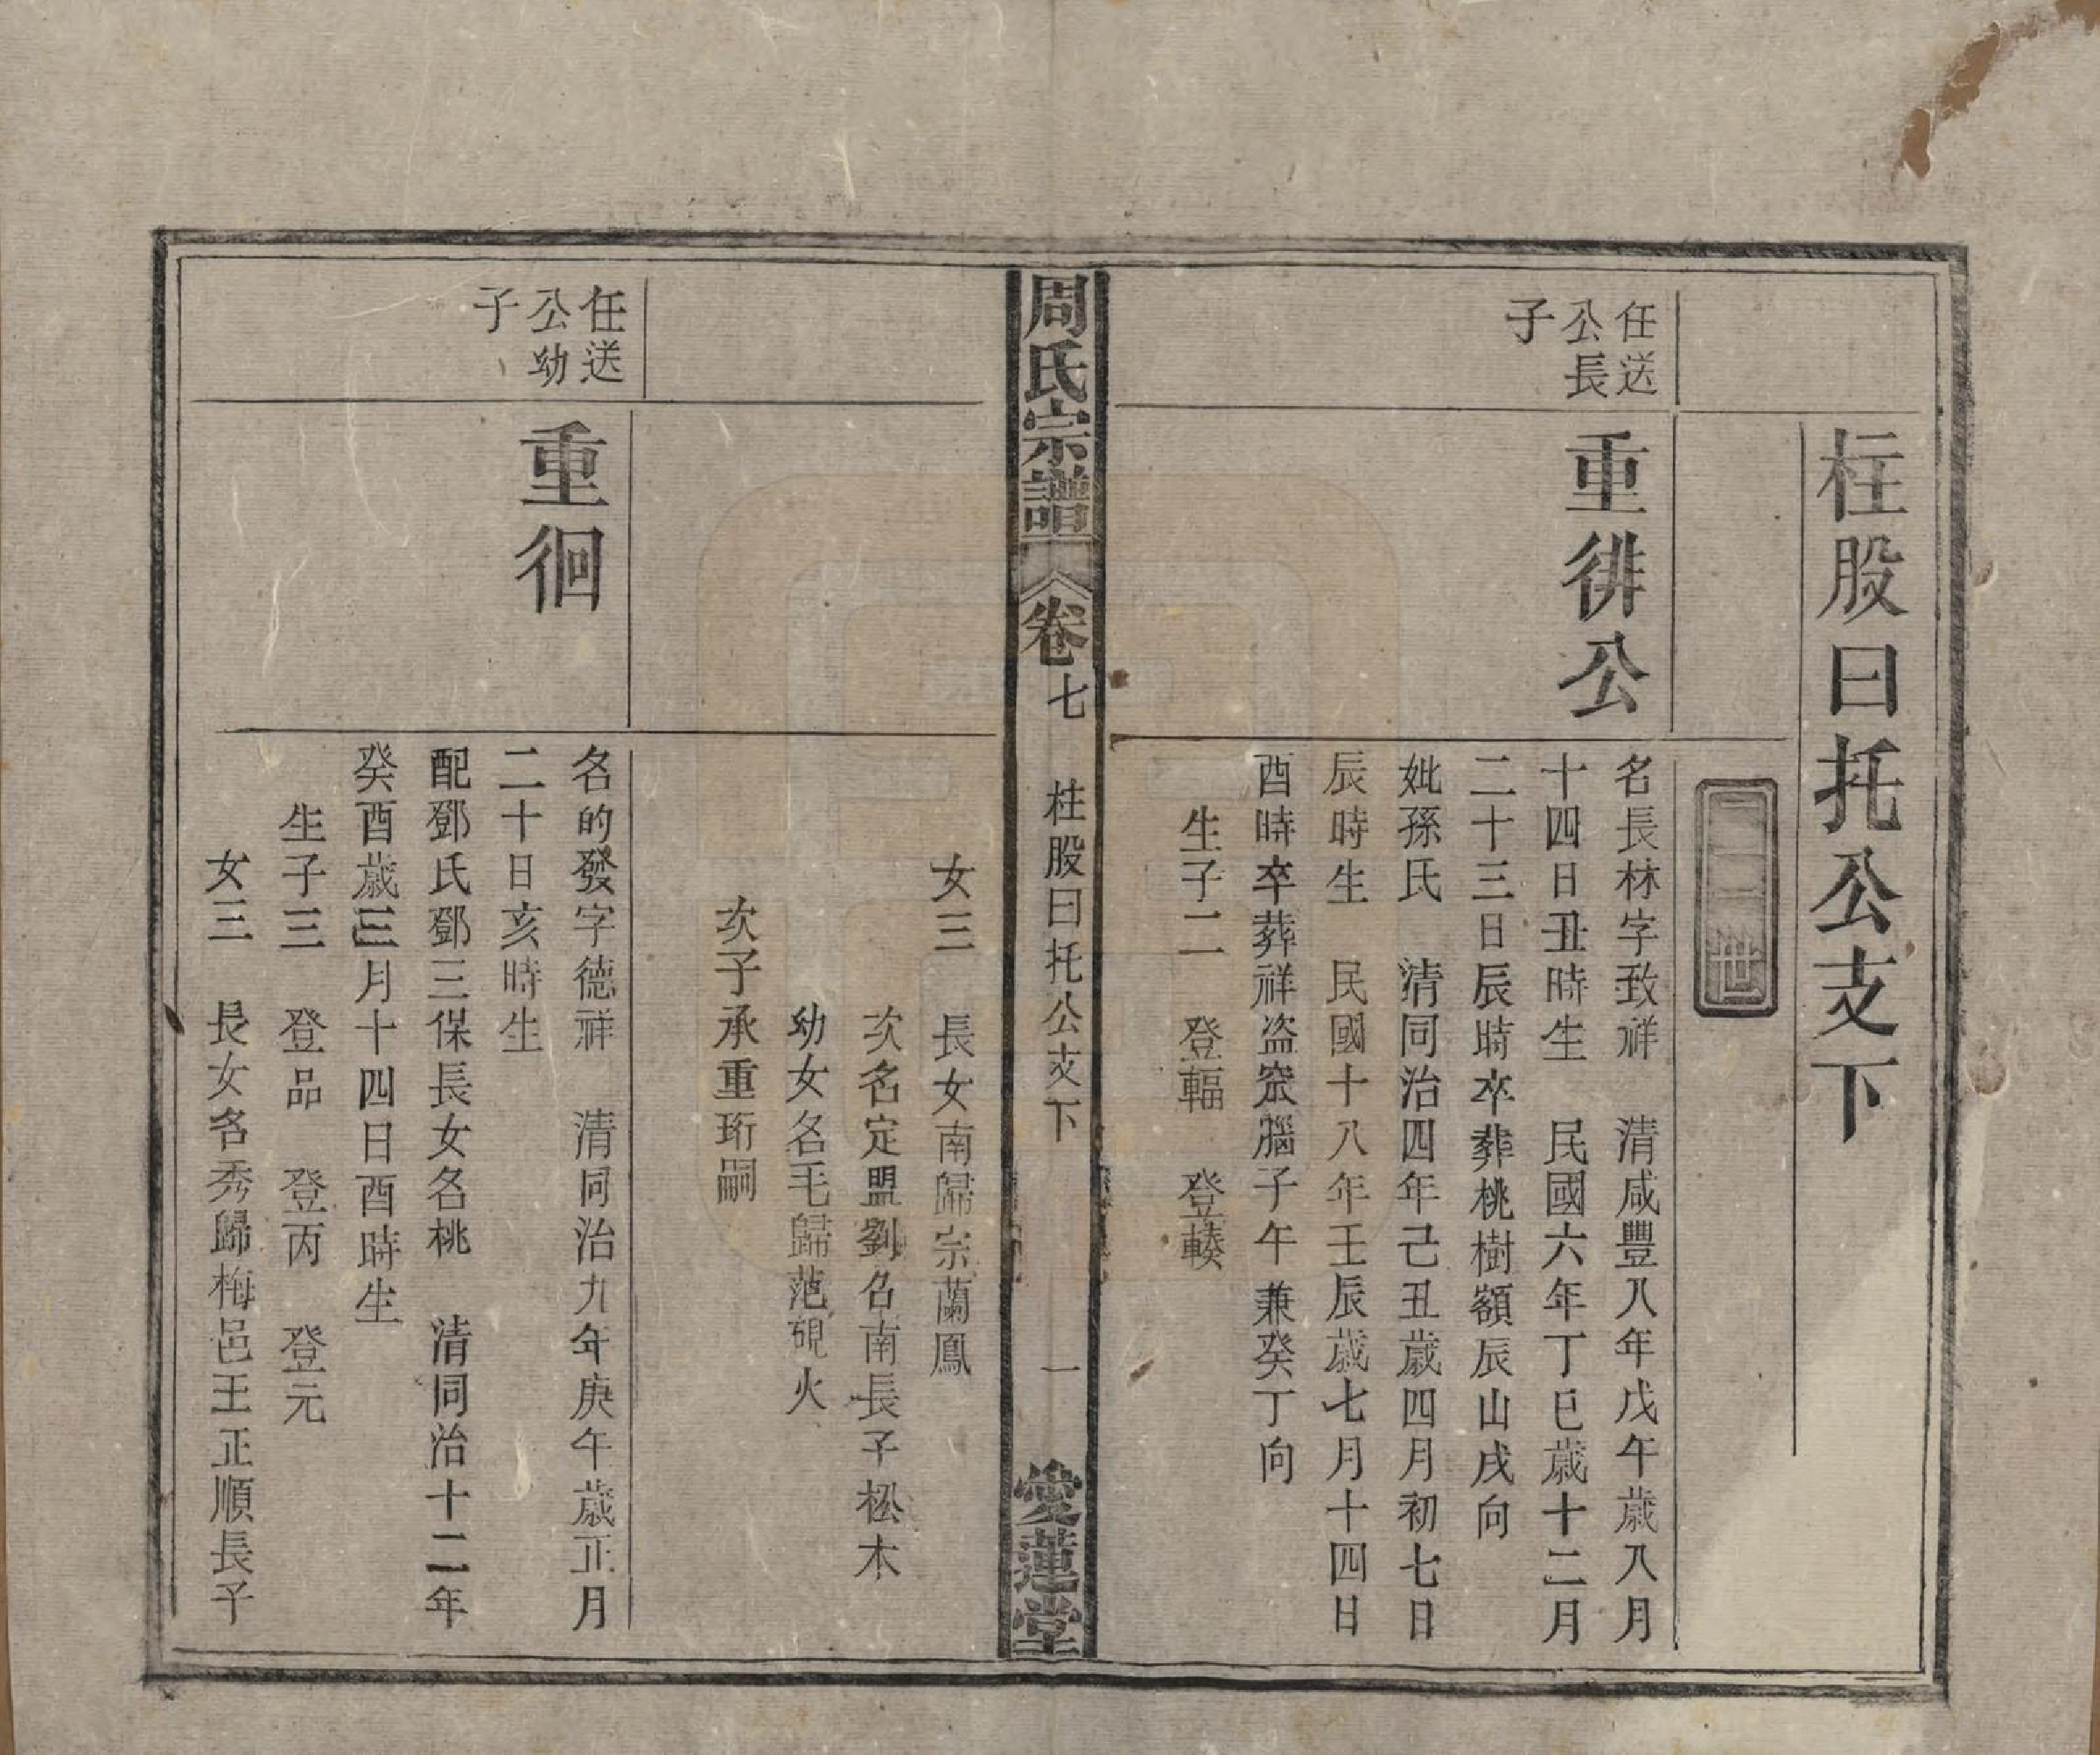 柱股曰托公支下
世
任送
公長
子
重徘公
名長林字致祥　清咸豐八年戊午歲八月
十四日丑時生　民國六年丁巳歲十二月
二十三日辰時卒葬桃樹額辰山戌向
妣孫氏　清同治四年己丑歲四月初七日
辰時生　民國十八年壬辰歲七月十四日
酉時卒葬祥盗窾腦子午兼癸丁向
生子二　登輻　登輳
周氏宗譜
卷七　柱股曰托公支下　一
愛蓮堂
女三　長女南歸宗蘭鳳
次名定盟劉名南長子松木
幼女名毛歸范硯火
次子承重珩嗣
任送
公幼
子
重徊
名的發字德祥　清同治九年庚午歲正月
二十日亥時生
配鄧氏鄧三保長女名桃　清同治十二年
癸酉歲三月十四日酉時生
生子三　登品　登丙　登元
女三　長女名秀歸梅邑王正順長子